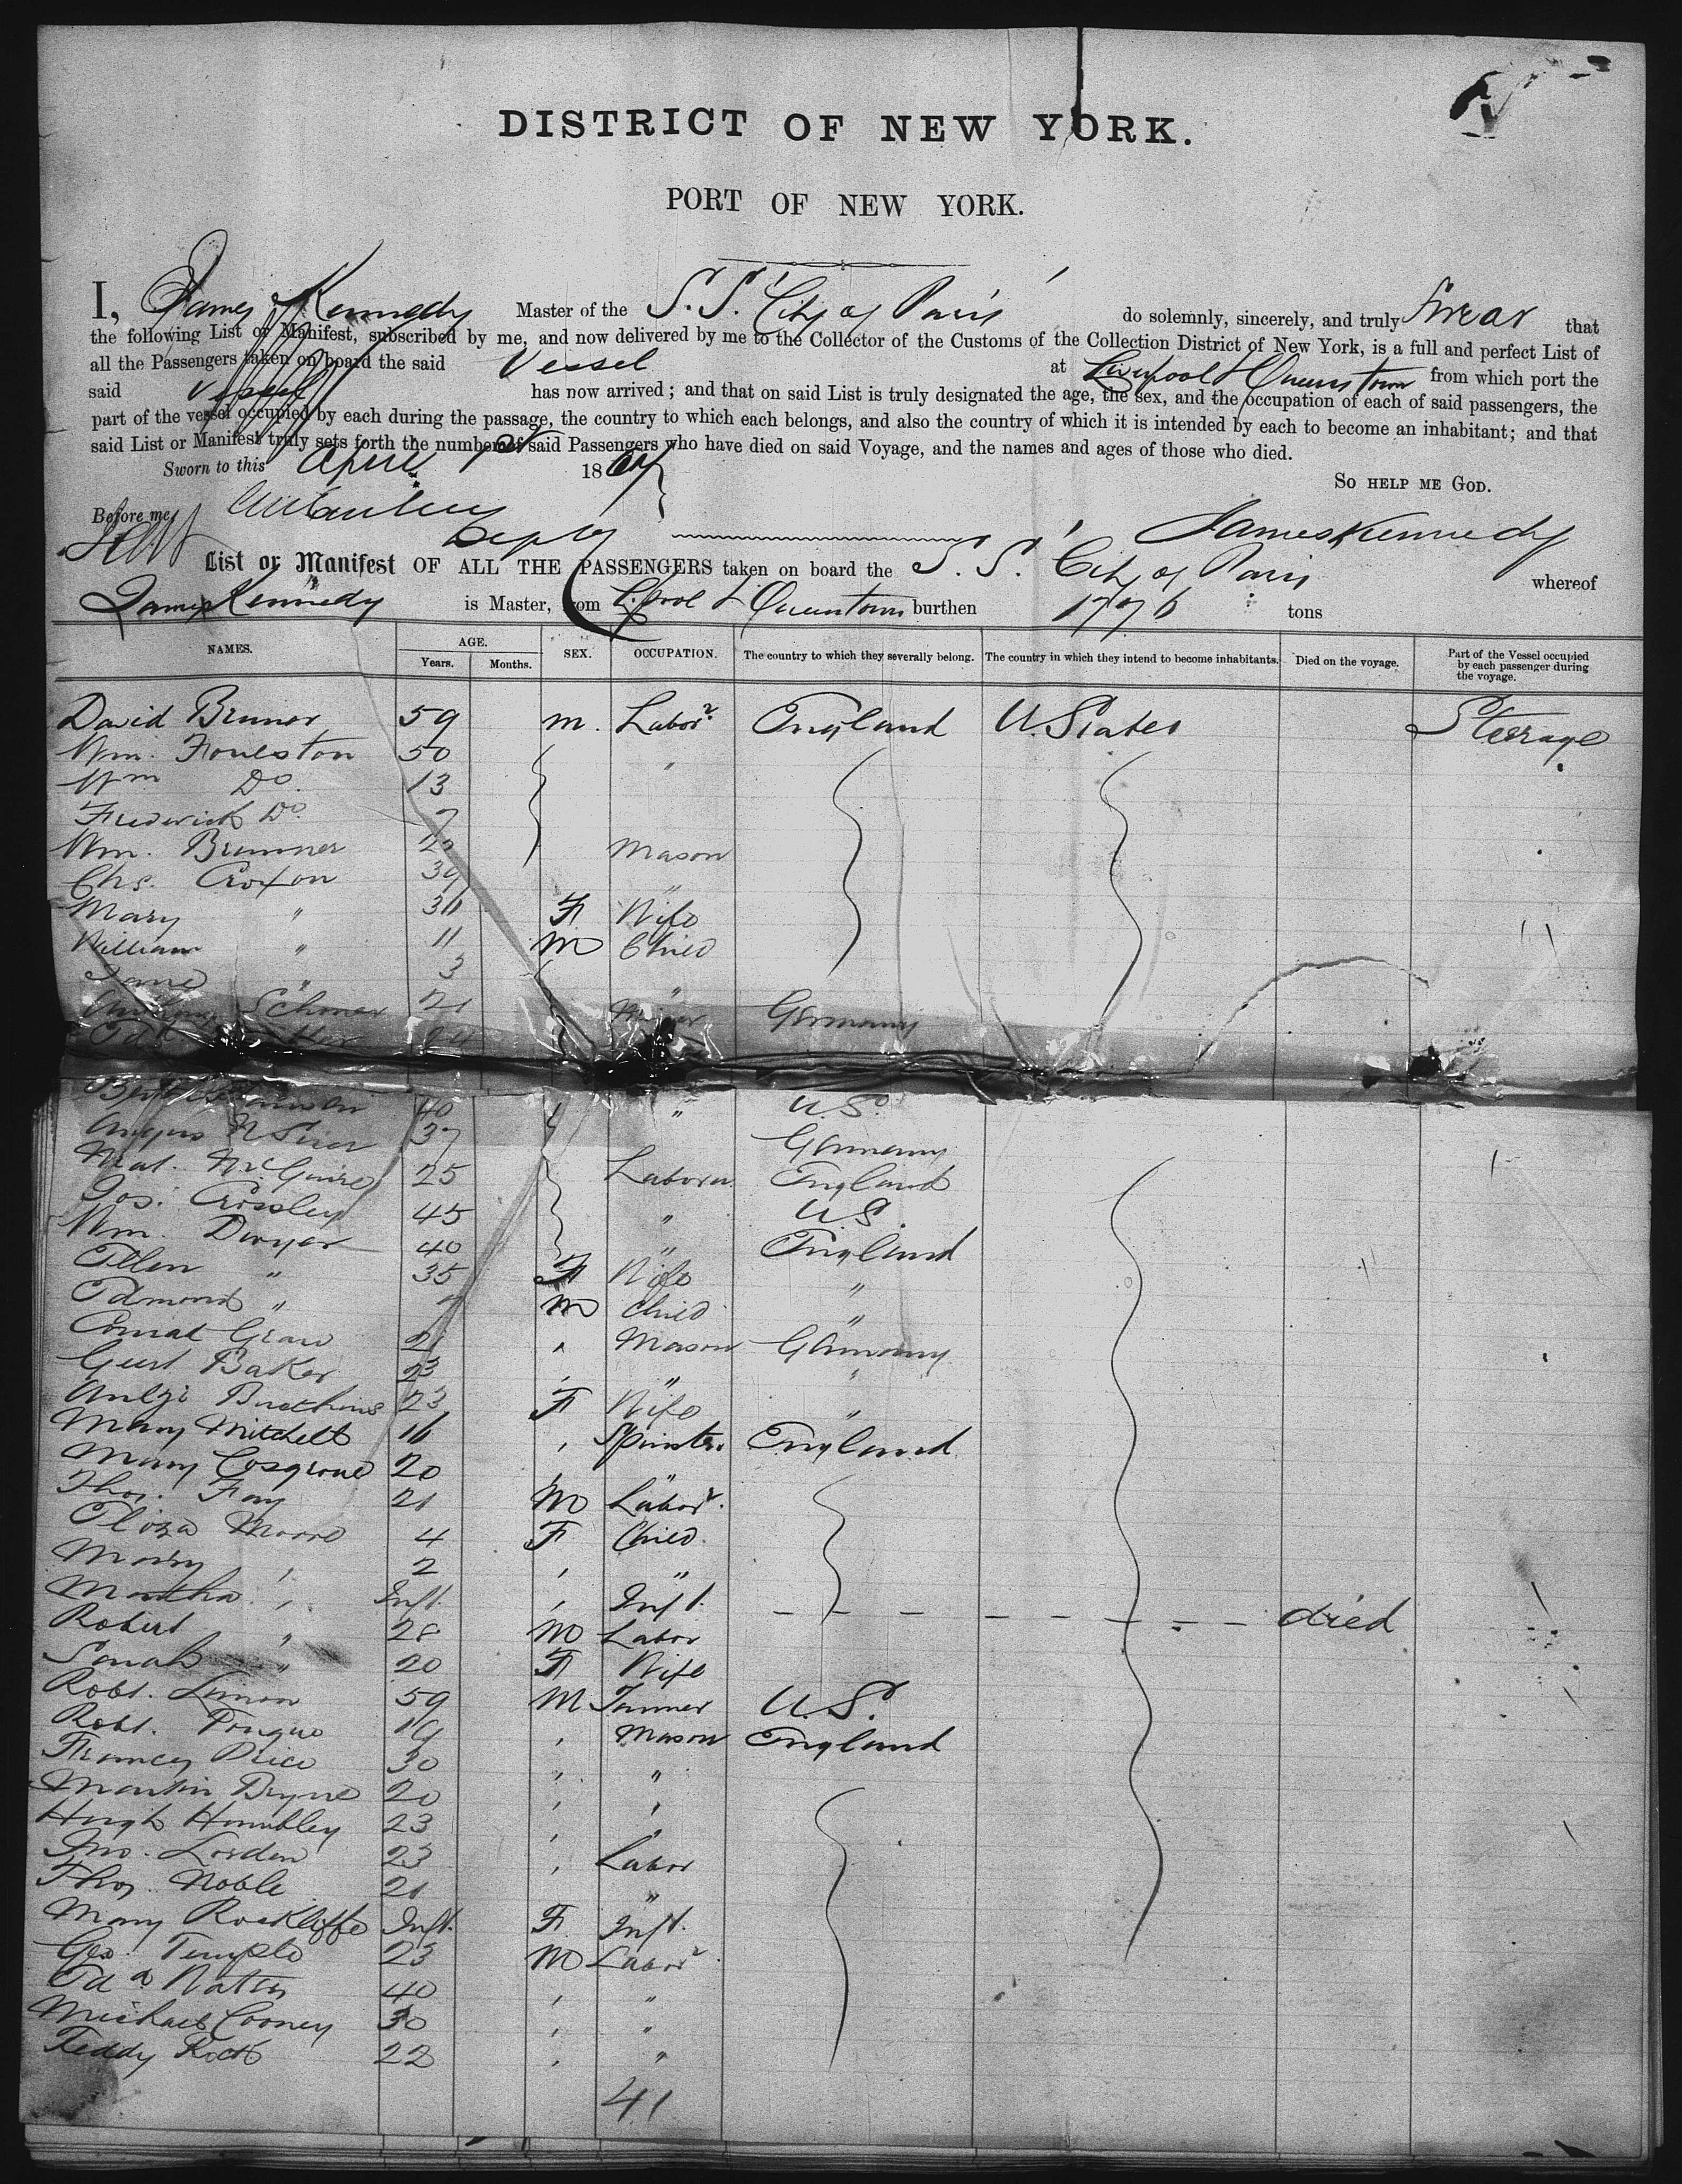 DISTRICT OF NEW YORK.
PORT OF NEW YORK.
I, James Kennedy Master of the S.S. City of Paris do solemnly, sincerely, and truly Swear that
the following List or Manifest, subscribed by me, and now delivered by me to the Collector of the Customs of the Collection District of New York, is a full and perfect List of
all the Passengers taken on board the said Vessel at Liverpool & Queenstown from which port the
said Vessel has now arrived; and that on said List is truly designated the age, the sex, and the occupation of each of said passengers, the
part of the vessel occupied by each during the passage, the country to which each belongs, and also the country of which it is intended by each to become an inhabitant; and that
said List or Manifest truly sets forth the number of said Passengers who have died on said Voyage, and the names and ages of those who died.
Sworn to this April 1st 18
So HELP ME GOD.
Before me, Depty James Kennedy
List or Manifest OF ALL THE PASSENGERS taken on board the S.S. City of Paris whereof
James Kennedy is Master, from L.pool & Queenstown burthen 1776 tons
NAMES. AGE. Years. Months. SEX. OCCUPATION. The country to which they severally belong. The country in which they intend to become inhabitants. Died on the voyage. Part of the Vessel occupied by each passenger during the voyage.
David Bruner 59 M. Labor England U. States Steerage
Wm. Foulston 50 "
Wm Do. 13
Frederick Do. 7
Wm. Brunner Mason
Chs. Croxton "
Mary " F Wife
William " 11 M Child
Jane " 3 "
Schoner 21 Germany
40 " U.S.
Angus 37 Germany
Mat. McGuire 25 Laborer England
Jos. Crossley 45 " U.S.
Wm. Dwyer 40 " England
Ellen " 35 F Wife "
Edmond " M Child "
Conrad Graw 21 " Mason Germany
Gust Baker 23 " " "
23 F Wife "
Mary Mitchell 16 " Spinster England
Mary Cosgrove 20 " "
Thos. Fay 21 M Labor.
Eliza Moore 4 F Child.
Mary " 2 " "
Martha " Inft. " Inft. died
Robert " 28 M Labor
Sarah " 20 F Wife
Robt. Limon 59 M Tanner U.S.
Robt. Pongue 19 " Mason England
Francey Price 30 " "
Martin Bryne 20 " "
Hugh Humbley 23 " "
Jno. Lorden 23 " Labor
Thos. Noble 21 "
Mary Rockliffe Inft. F Inft.
Geo. Temple 23 M Labor
Edd 40 " "
Michael Cooney 30 " "
Teddy 22 " "
41